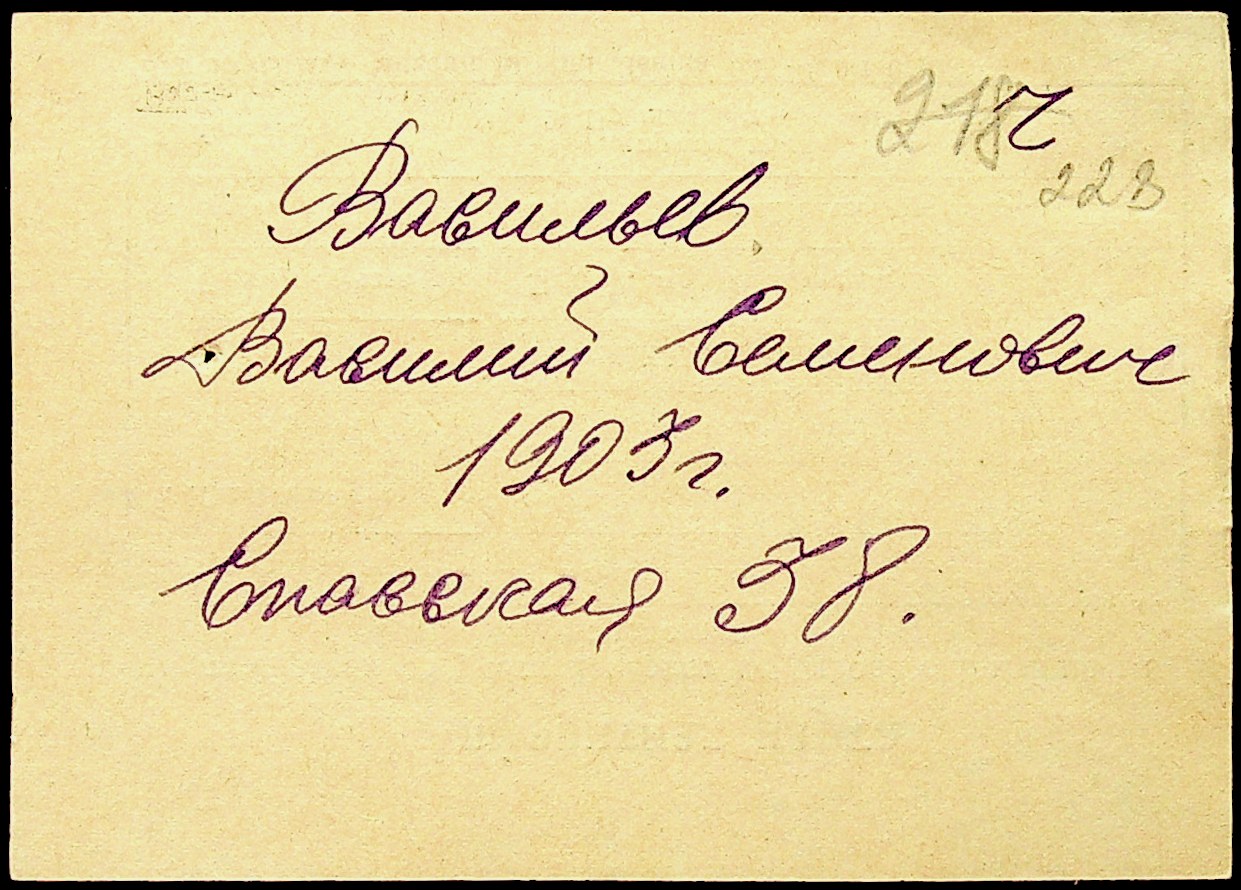 ч
228
Васильев
Василий Семенович
1903 г.
Спасская 38.